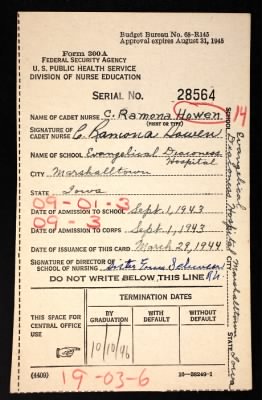 Budget Bureau No. 68-R145
Approval expires August 31, 1945
Form 300A
FEDERAL SECURITY AGENCY
U. S. PUBLIC HEALTH SERVICE
DIVISION OF NURSE EDUCATION
SERIAL NO. 28564
NAME OF CADET NURSE C. Ramona Howen
(PRINT OR TYPE)
SIGNATURE OF CADET NURSE C. Ramona Howen
NAME OF SCHOOL Evangelical Deaconess Hospital
CITY Marshalltown
STATE Iowa
09-01-3
DATE OF ADMISSION TO SCHOOL Sept. 1, 1943
09-3
DATE OF ADMISSION TO CORPS Sept. 1, 1943
DATE OF ISSUANCE OF THIS CARD March 29, 1944
SIGNATURE OF DIRECTOR OF SCHOOL OF NURSING Sister
DO NOT WRITE BELOW THIS LINE
THIS SPACE FOR CENTRAL OFFICE USE
TERMINATION DATES
BY GRADUATION
WITH DEFAULT
WITHOUT DEFAULT
10/10/46
(4409)
16-38249-1
19-03-6
14
SCHOOL Evangelical Deaconess Hospital
CITY Marshalltown
STATE Iowa